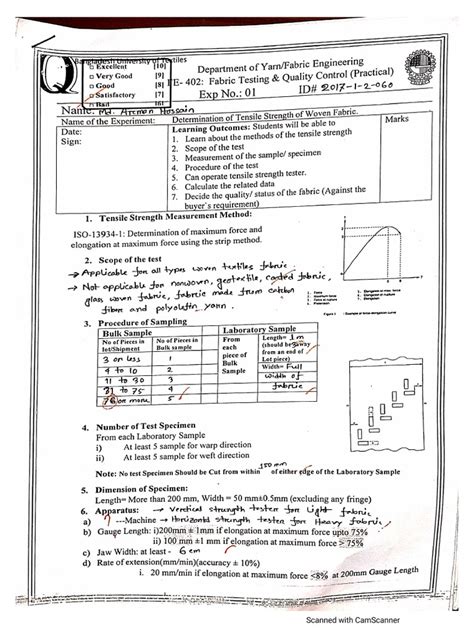 Bangladesh University of Textiles
Q
□ Excellent [10]
□ Very Good [9]
□ Good [8]
□ Satisfactory [7]
□ Bad [6]
Department of Yarn/Fabric Engineering
FE- 402: Fabric Testing & Quality Control (Practical)
Exp No.: 01 ID# 2017-1-2-060
Name: Md. Arman Hossain
Name of the Experiment: Determination of Tensile Strength of Woven Fabric.
Date:
Sign:
Learning Outcomes: Students will be able to
1. Learn about the methods of the tensile strength
2. Scope of the test
3. Measurement of the sample/ specimen
4. Procedure of the test
5. Can operate tensile strength tester.
6. Calculate the related data
7. Decide the quality/ status of the fabric (Against the
buyer's requirement)
Marks
1. Tensile Strength Measurement Method:
ISO-13934-1: Determination of maximum force and
elongation at maximum force using the strip method.
2. Scope of the test
→ Applicable for all types woven textiles fabric.
→ Not applicable for nonwoven, geotextile, coated fabric,
glass woven fabric, fabric made from carbon
fiber and polyolefin yarn.
3. Procedure of Sampling
Bulk Sample Laboratory Sample
No of Pieces in lot/Shipment
No of Pieces in Bulk sample
3 or less 1
4 to 10 2
11 to 30 3
31 to 75 4
76 or more 5
From each piece of Bulk Sample
Length= 1m
(should be 3 away
from an end of
Lot piece)
Width= Full
width of
fabric
4. Number of Test Specimen
From each Laboratory Sample
i) At least 5 sample for warp direction
ii) At least 5 sample for weft direction
Note: No test Specimen Should be Cut from within 150 mm of either edge of the Laboratory Sample
5. Dimension of Specimen:
Length= More than 200 mm, Width = 50 mm±0.5mm (excluding any fringe)
6. Apparatus: → Vertical strength tester for Light fabric
a) ---Machine → Horizontal strength tester for Heavy fabric
b) Gauge Length: i)200mm ± 1mm if elongation at maximum force upto 75%
ii) 100 mm ± if elongation at maximum force > 75%
c) Jaw Width: at least - 6 cm
d) Rate of extension(mm/min)(accuracy ± 10%)
i. 20 mm/min if elongation at maximum force ≤8% at 200mm Gauge Length
Scanned with CamScanner